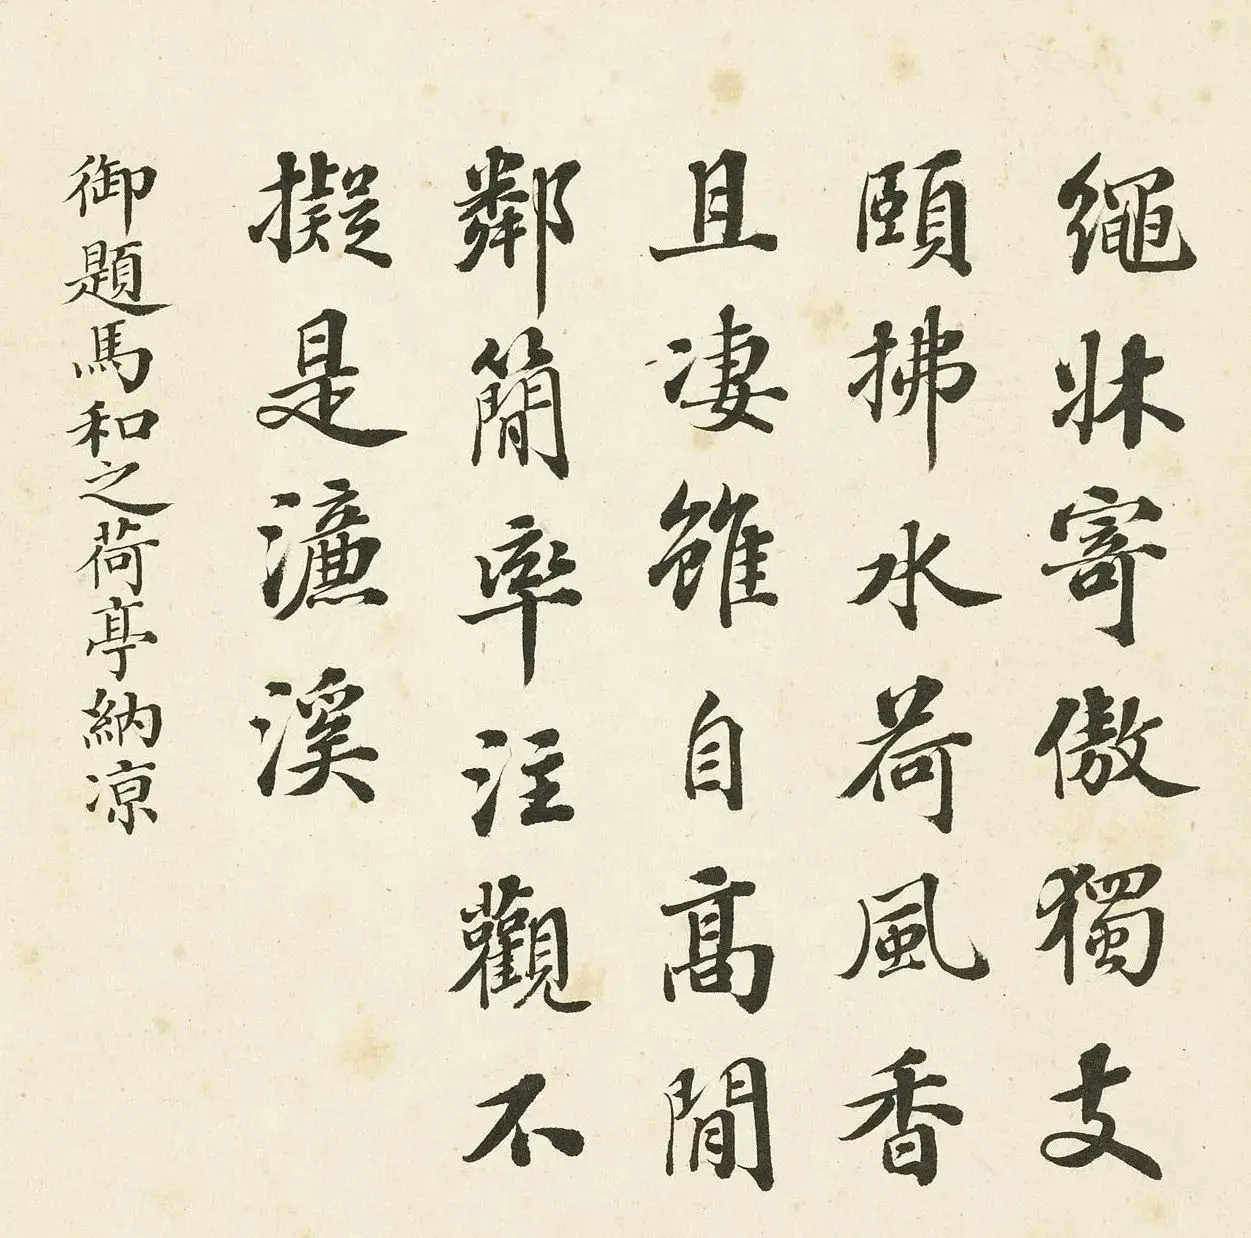 繩牀寄傲獨支
頤拂水荷風香
且淒雖自高閒
鄰簡率注觀不
擬是濂溪
御題馬和之荷亭納涼